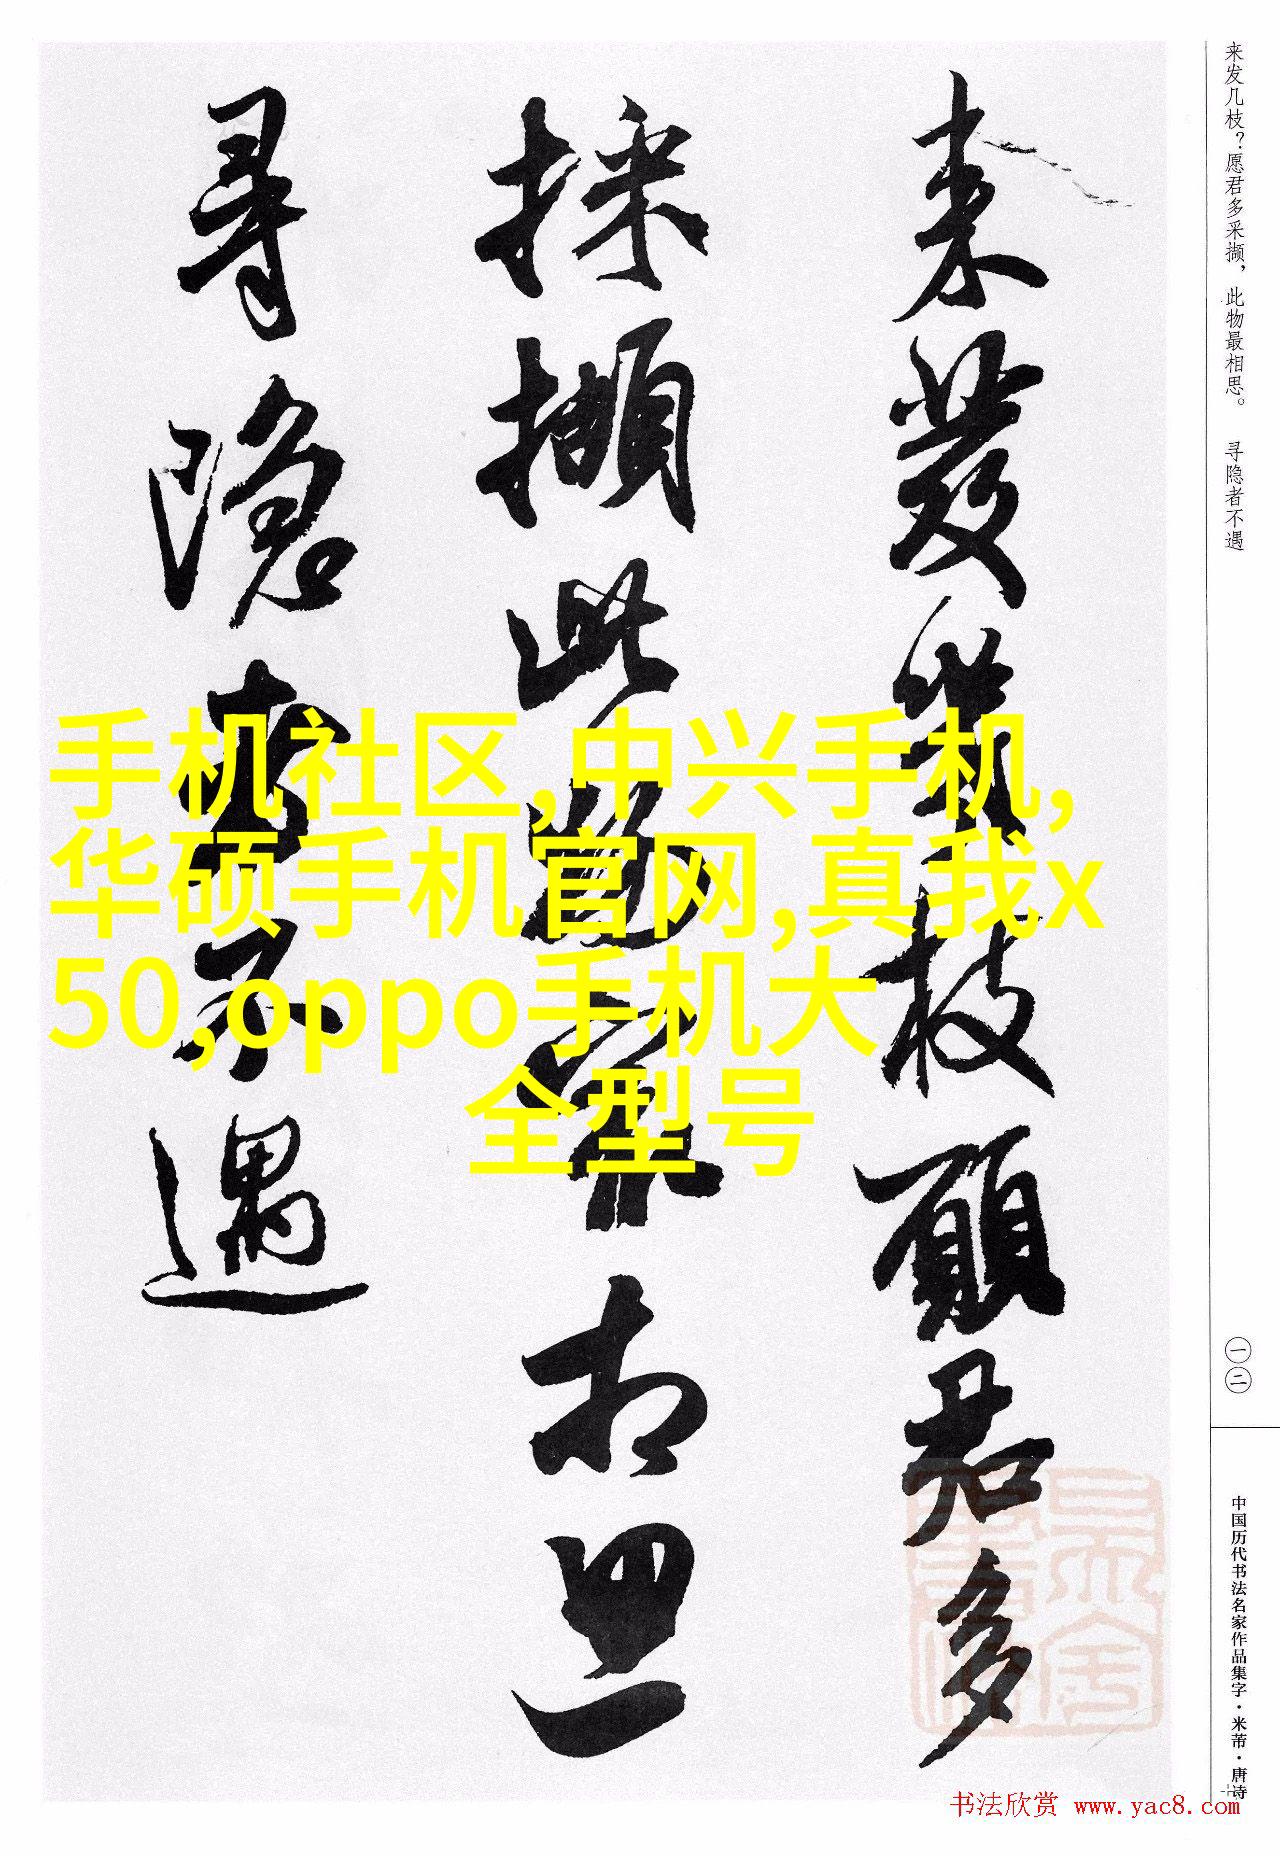 来发几枝？愿君多采撷，此物最相思。 寻隐者不遇
来發幾枝願君多
採擷此物最相思
尋隱者不遇
手机社区,中兴手机,
华硕手机官网,真我x
50,oppo手机大
全型号
一二
中国历代书法名家作品集字·米芾·唐诗
书法欣赏 www.yac8.com